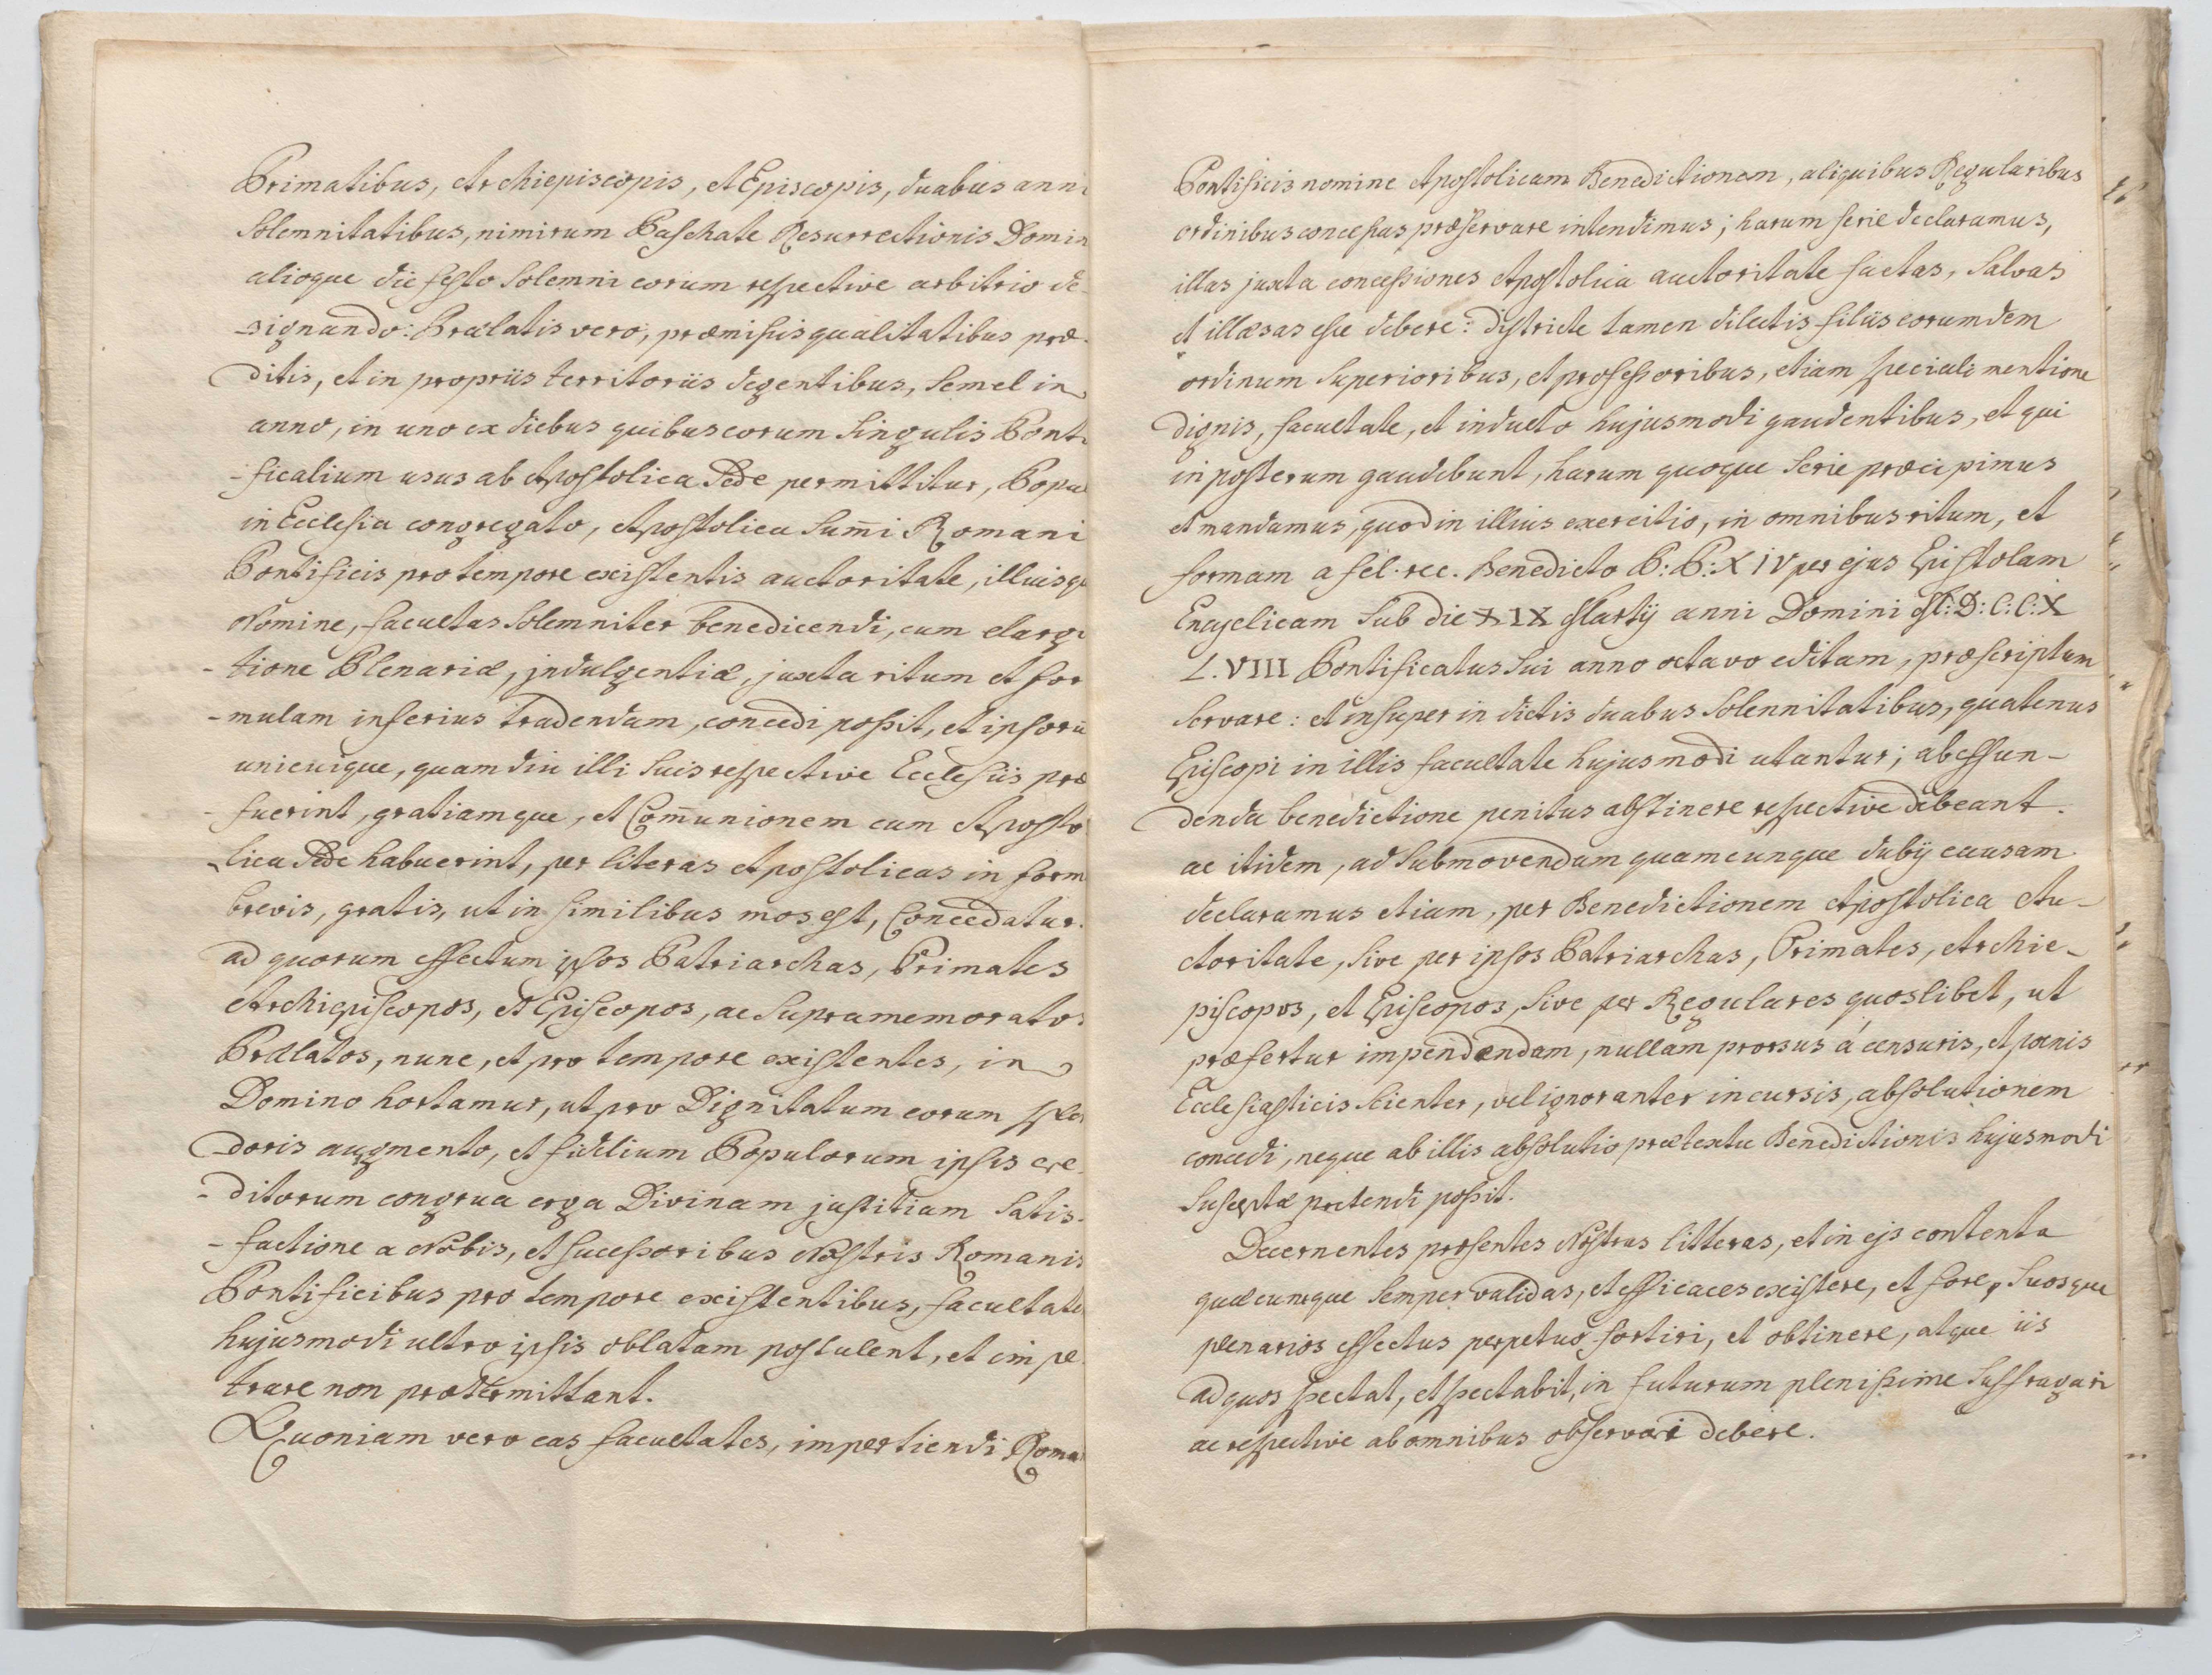 Primatibus, Archiepiscopis, et Episcopis, duabus anni
Solemnitatibus, nimirum Paschate Resurrectionis Domin
alioque die festo Solemni eorum respective arbitrio de-
-signando: Prælatis vero, præmissis qualitatibus præ-
ditis, et in propriis territoriis degentibus, Semel in
anno, in uno ex diebus quibus eorum Singulis Ponti
-ficalium usus ab Apostolica Sede permittitur, Popul
in Ecclesia congregato, Apostolica Sum̃i Romani
Pontificis pro tempore existentis auctoritate, illiusqu
Nomine, facultas Solemniter benedicendi, cum elargi
-tione Plenariæ, jndulgentiæ, juxta ritum et for
-mulam inferius tradendam, concedi possit, et ipsorũ
unicuique, quamdiu illi Suis respective Ecclesiis præ
-fuerint, gratiamque, et Com̃unionem cum Aposto
-lica Sede habuerint, per literas Apostolicas in form
brevis, gratis, ut in Similibus mos est, Concedatur.
ad quorum effectum ipsos Patriarchas, Primates
Archiepiscopos, et Episcopos, ac Supramemoratos
Prælatos, nunc, et pro tempore existentes, in
Domino hortamur, ut pro Dignitatum eorum splen
doris augmento, et fidelium Populorum ipsis cre-
-ditorum congrua erga Divinam justitiam Satis-
-factione a Nobis, et Sucessoribus Nostris Romanis
Pontificibus pro tempore existentibus, facultate
hujusmodi ultro ipsis oblatam postulent, et impe-
trare non prætermittant.
Quoniam vero eas facultates, impertiendi Roma
Pontificis nomine Apostolicam Benedictionem, aliquibus Regularibus
ordinibus concessas præservare intendimus; harum serie declaramus,
illas juxta concessiones Apostolica auctoritate factas, Salvas
et illæsas esse debere: districte tamen dilectis filiis eorumdem
ordinum Superioribus, et professoribus, etiam speciali mentione
dignis, facultate, et indulto hujusmodi gaudentibus, et qui
in posterum gaudebunt, harum quoque Serie præcipimus
et mandamus, quod in illius exercitio, in omnibus ritum, et
formam a fel. rec. Benedicto P: P: XIV per ejus Epistolam
Encyclicam Sub die XIX Martij anni Domini M: D: C: C: X
L. VIII Pontificatus Sui anno octavo editam, præscriptum
Servare: et insuper in dictis duabus Solennitatibus, quatenus
Episcopi in illis facultate hujusmodi utantur; ab effun-
denda benedictione penitus abstinere respective debeant.
ac itidem, ad Submovendam quamcunque dubij causam
declaramus etiam, per Benedictionem Apostolica Au-
ctoritate, Sive per ipsos Patriarchas, Primates, Archie-
piscopos, et Episcopos, Sive per Regulares quoslibet, ut
præfertur impendendam, nullam prorsus á censuris, et pœnis
Ecclesiasticis Scienter, vel ignoranter incursis, absolutionem
concedi, neque ab illis absolutio prætextu Benedictionis hujusmodi
Susceptæ pretendi possit.
Decernentes præsentes Nostras litteras, et in ejs contenta
quæcumque Semper validas, et efficaces existere, et fore, Suosque
plenarios effectus perpetuo sortiri, et obtinere, atque iis
ad quos spectat, et spectabit, in futurum plenissime Suffragari
ac respective ab omnibus observari debere.